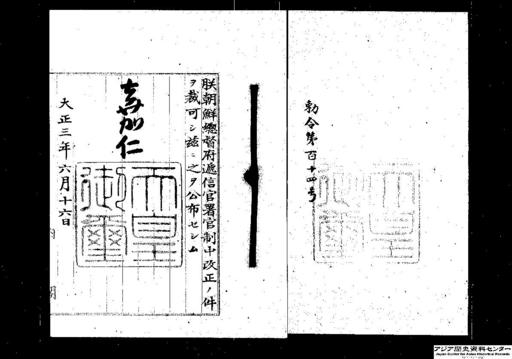 勅令第百十四号
朕朝鮮總督府遞信官署官制中改正ノ件
ヲ裁可シ茲ニ之ヲ公布セシム
嘉仁
天皇
御璽
大正三年六月十六日
内
アジア歴史資料センター
Japan Center for Asian Historical Records